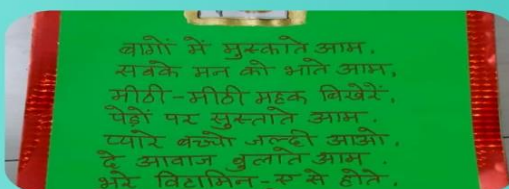 बागों में मुस्काते आम,
सबके मन को भाते आम,
मीठी-मीठी महक बिखेरें,
पेड़ों पर सुस्ताते आम.
प्यारे बच्चो जल्दी आओ,
दे आवाज बुलाते आम.
भरे विटामिन-ए से होते,